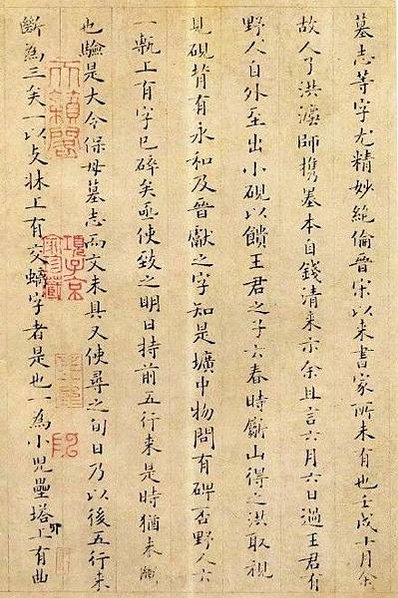 墓志等字尤精妙絶倫晉宋以来書家所未有也壬戌十月余
故人了洪演師攜墓本自錢清来示余且言六月六日過王君有
野人自外至出小硯以饋王君之子云春時斸山得之洪取視
見硯背有永和及晉獻之字知是壙中物問有碑否野人云
一甎上有字已碎矣亟使致之明日持前五行来是時猶未斷
也驗是大令保母墓志而文未具又使尋之旬日乃以後五行来
斷為三矣一以支牀上有交螭字者是也一為小兒壘塔上有曲
項子京